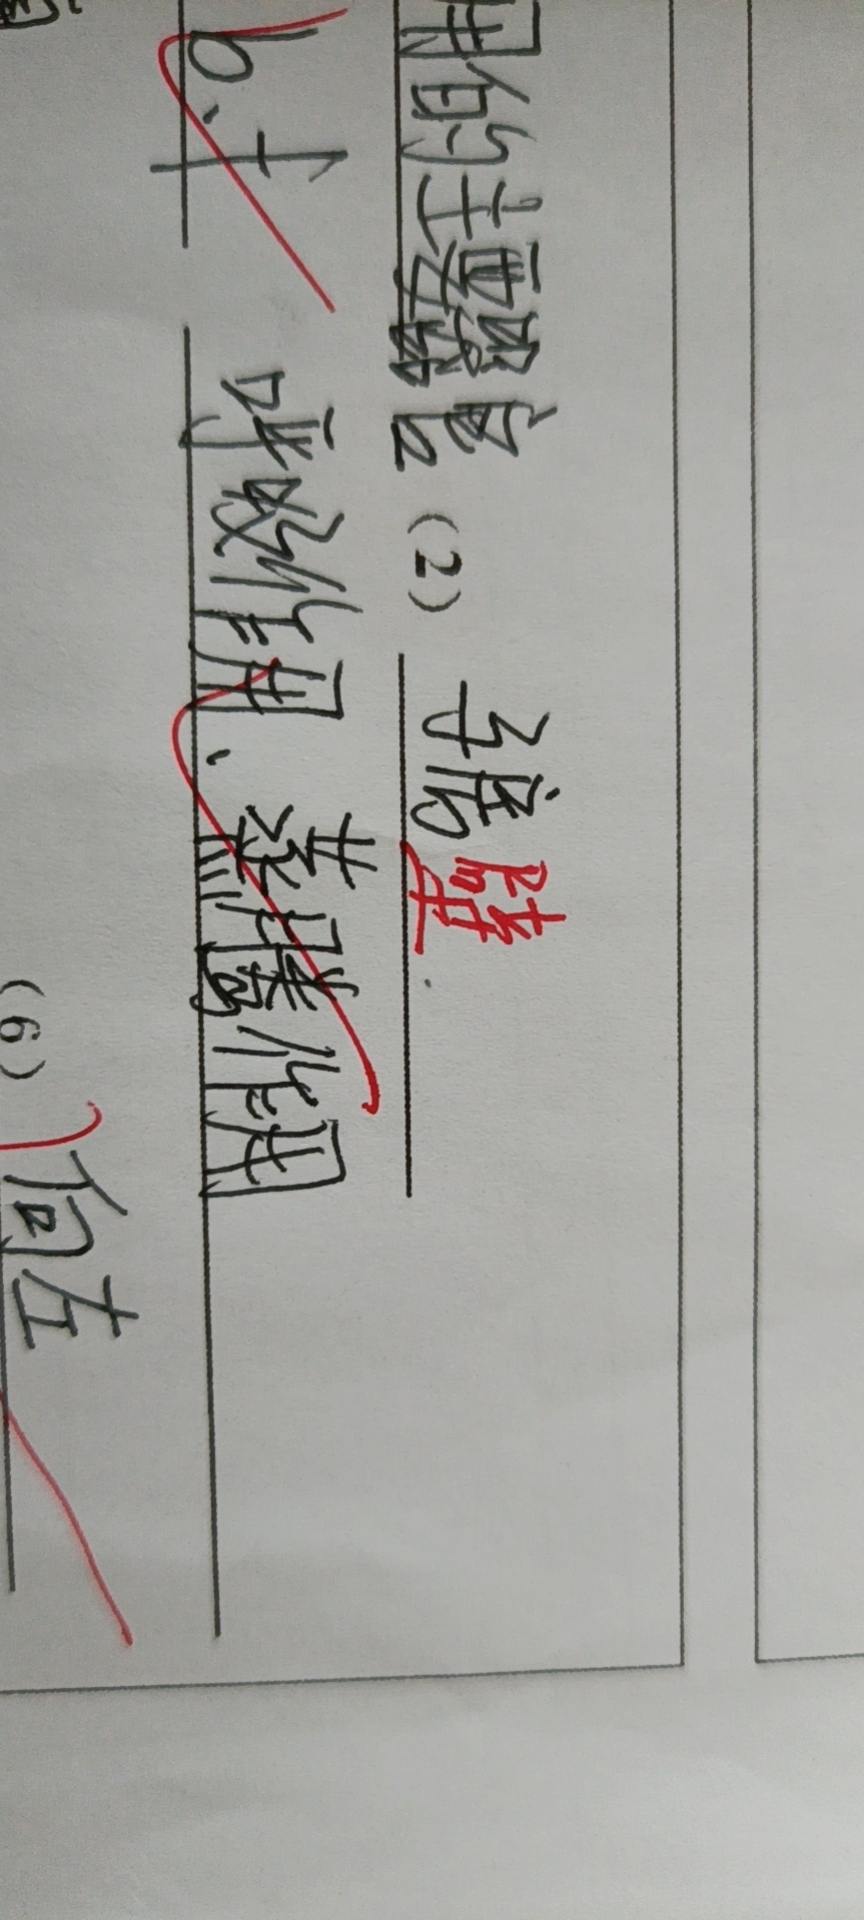 用的主要器官 (2) 子房壁
b、十 呼吸作用、蒸腾作用
(6) 向左